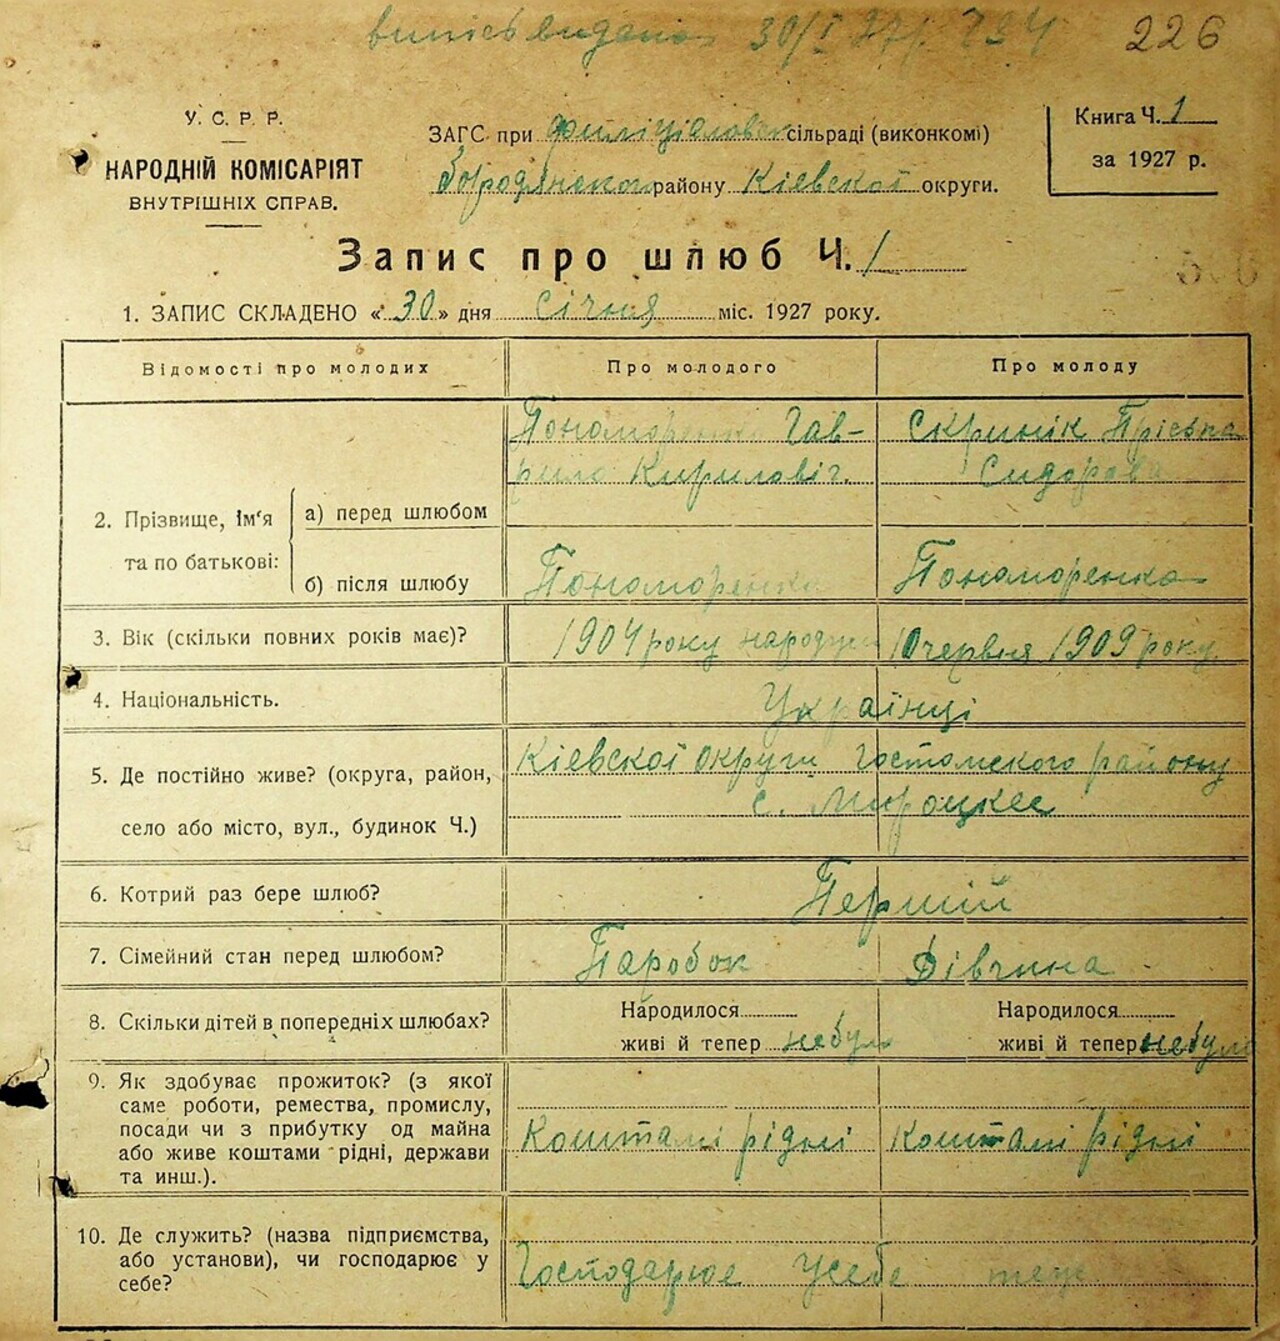 випись видана 30/I 27 р. 
226
У. С. Р. Р.
НАРОДНІЙ КОМІСАРІЯТ
ВНУТРІШНІХ СПРАВ.
ЗАГС при сільраді (виконкомі)
Бородянского району Кіевскої округи.
Книга Ч. 1
за 1927 р.
Запис про шлюб Ч. 1
1. ЗАПИС СКЛАДЕНО «30» дня січня міс. 1927 року.
Відомості про молодих
Про молодого
Про молоду
2. Прізвище, ім‘я
та по батькові:
а) перед шлюбом
Пономоренко Гав-
рило Кирилович.
Скриник
Сидорова
б) після шлюбу
Пономоренко
Пономоренко
3. Вік (скільки повних років має)?
1904 року народж
10 червня 1909 року.
4. Національність.
Українці
5. Де постійно живе? (округа, район,
село або місто, вул., будинок Ч.)
Кіевскої округи Гостомского району
с. Мироцкее
6. Котрий раз бере шлюб?
Перший
7. Сімейний стан перед шлюбом?
Паробок
Дівчина
8. Скільки дітей в попередніх шлюбах?
Народилося
живі й тепер небуло
Народилося
живі й тепер небуло
9. Як здобуває прожиток? (з якої
саме роботи, ремества, промислу,
посади чи з прибутку од майна
або живе коштами рідні, держави
та инш.).
Коштамі рідні
Коштамі рідні
10. Де служить? (назва підприємства,
або установи), чи господарює у
себе?
Господарює усебе теж